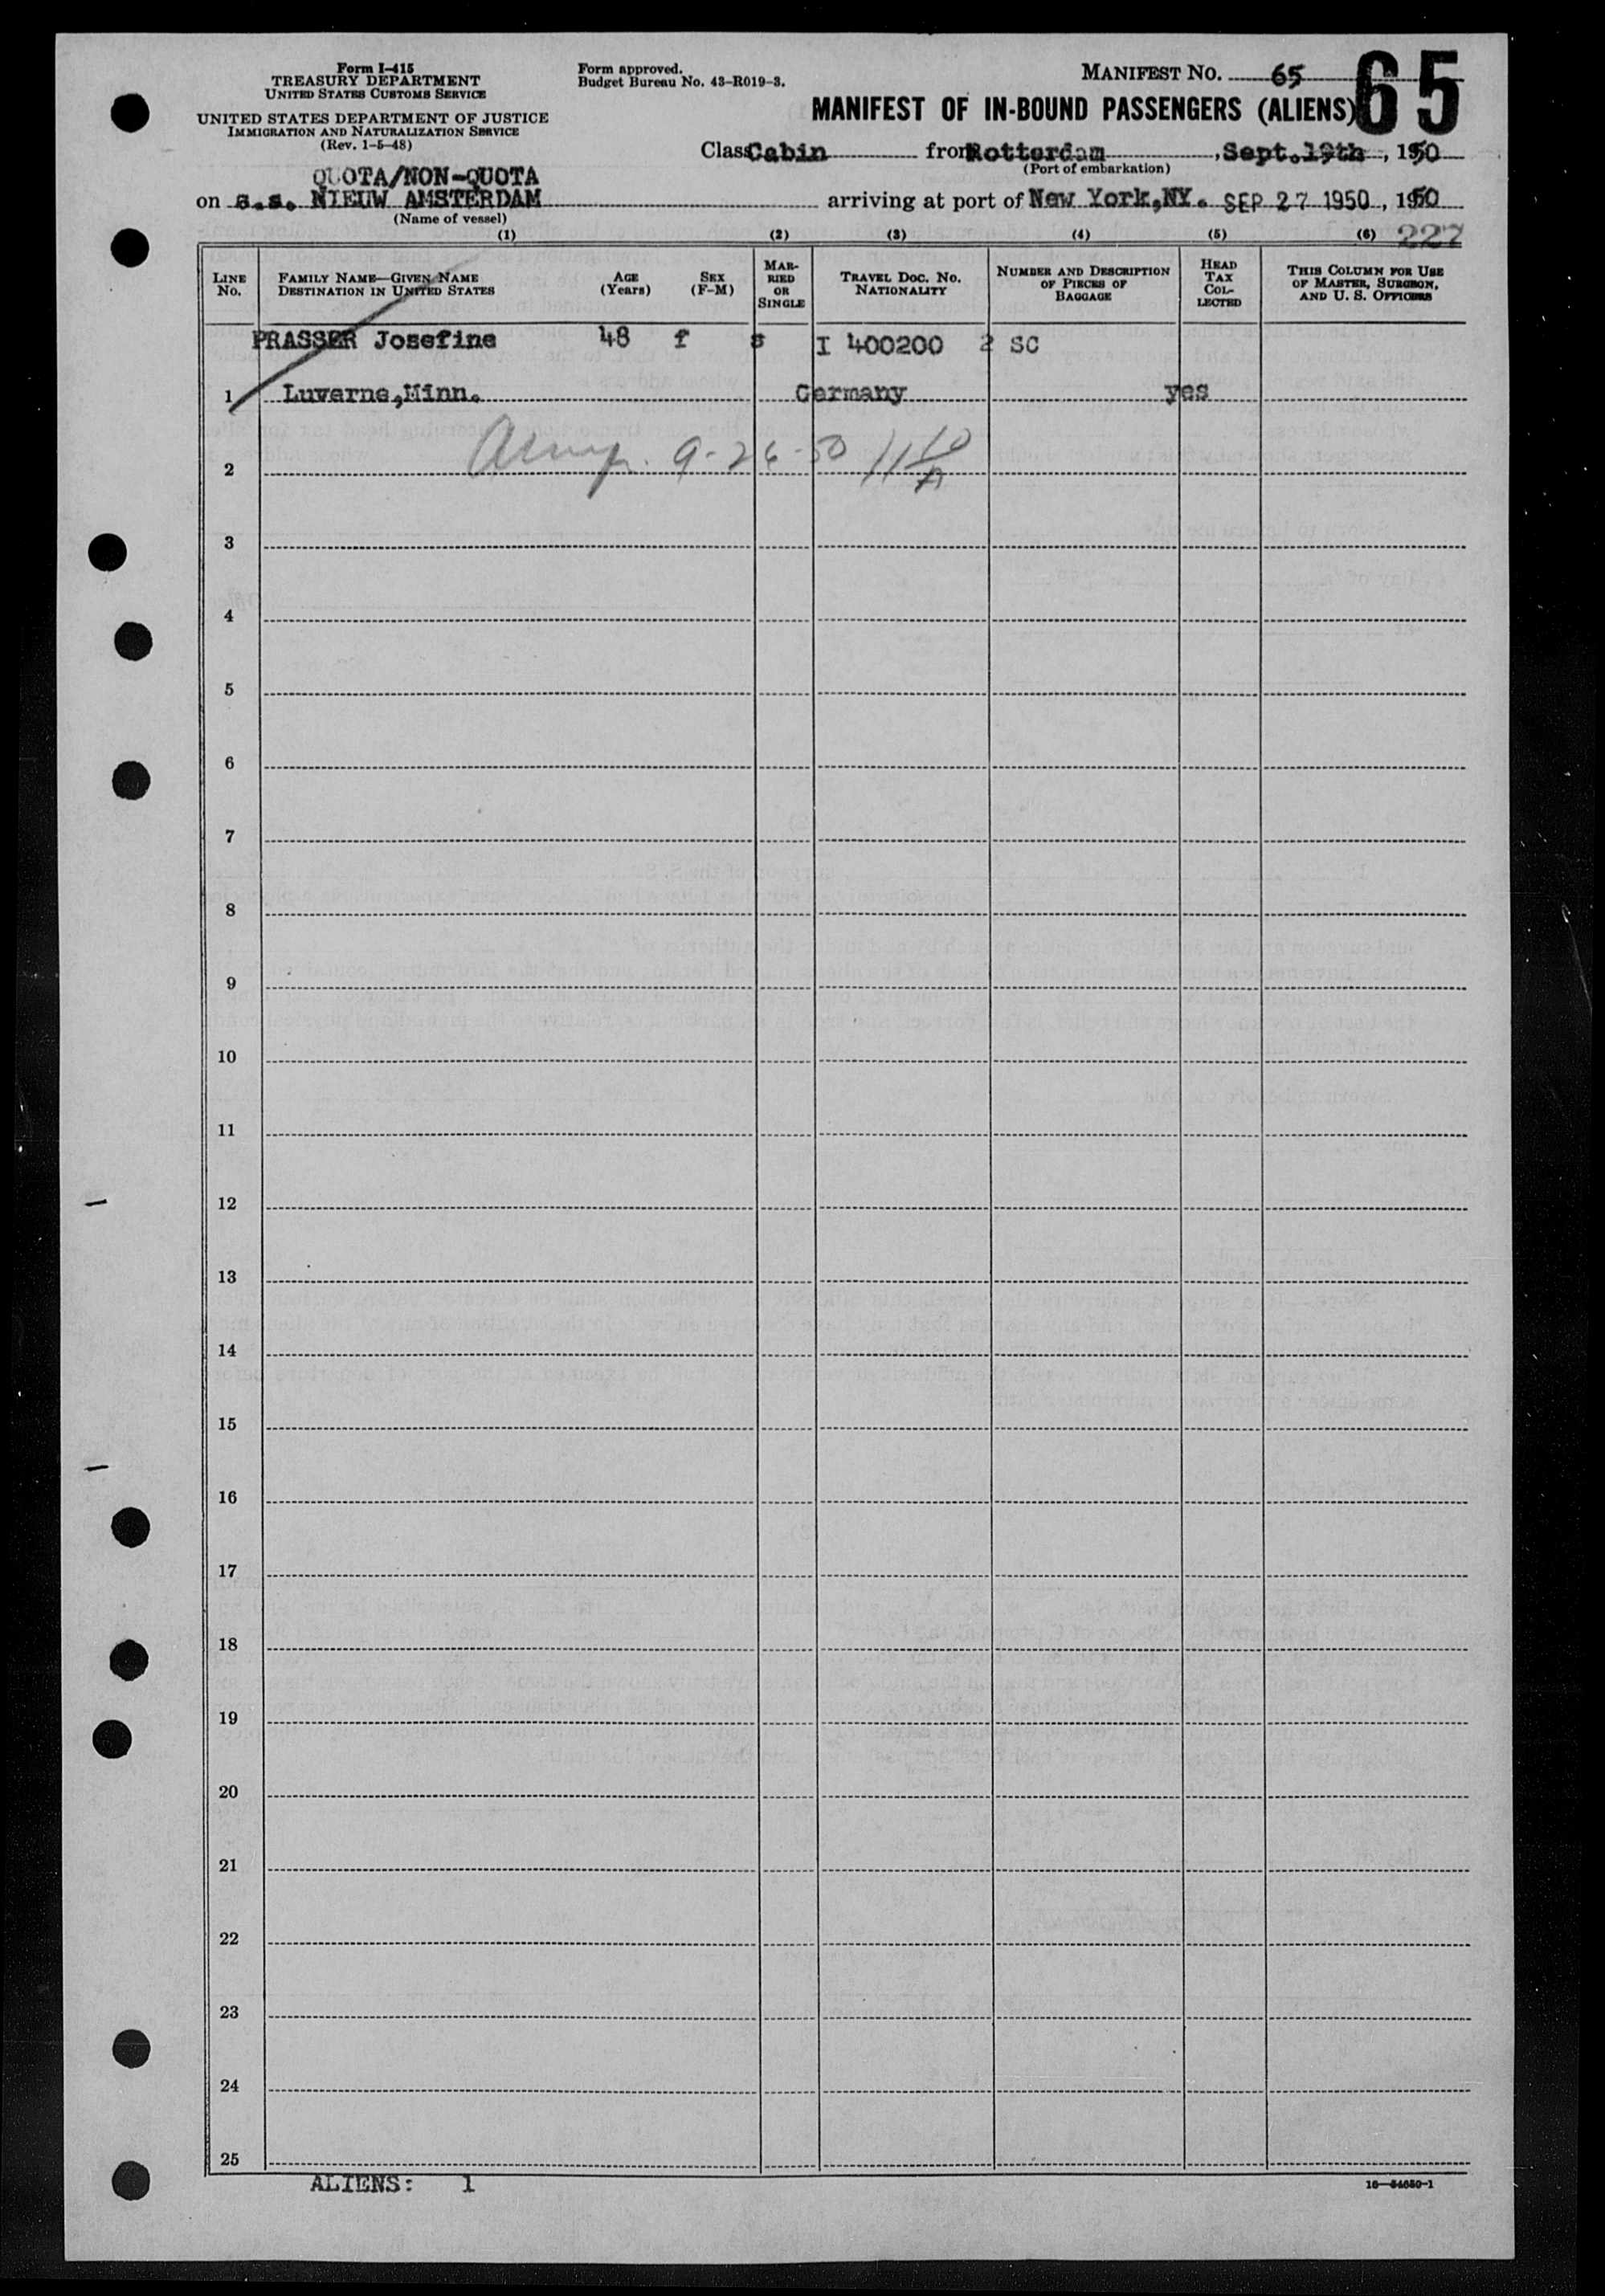 Form I-415
TREASURY DEPARTMENT
UNITED STATES CUSTOMS SERVICE
UNITED STATES DEPARTMENT OF JUSTICE
IMMIGRATION AND NATURALIZATION SERVICE
(Rev. 1-5-48)
Form approved.
Budget Bureau No. 43-R019-3.
MANIFEST NO. 65
65
MANIFEST OF IN-BOUND PASSENGERS (ALIENS)
Class Cabin from Rotterdam, Sept. 19th, 1950
(Port of embarkation)
QUOTA/NON-QUOTA
on s.s. NIEUW AMSTERDAM arriving at port of New York, NY. SEP 27 1950, 1950
(Name of vessel)
(1) (2) (3) (4) (5) (6) 227
LINE No.
FAMILY NAME—GIVEN NAME
DESTINATION IN UNITED STATES
AGE (Years)
SEX (F-M)
MARRIED OR SINGLE
TRAVEL DOC. NO.
NATIONALITY
NUMBER AND DESCRIPTION OF PIECES OF BAGGAGE
HEAD TAX COLLECTED
THIS COLUMN FOR USE OF MASTER, SURGEON, AND U. S. OFFICERS
PRASSER Josefine 48 f s I 400200 2 SC
1 Luverne, Minn. Germany yes
2 9-26-50
3
4
5
6
7
8
9
10
11
12
13
14
15
16
17
18
19
20
21
22
23
24
25
ALIENS: 1